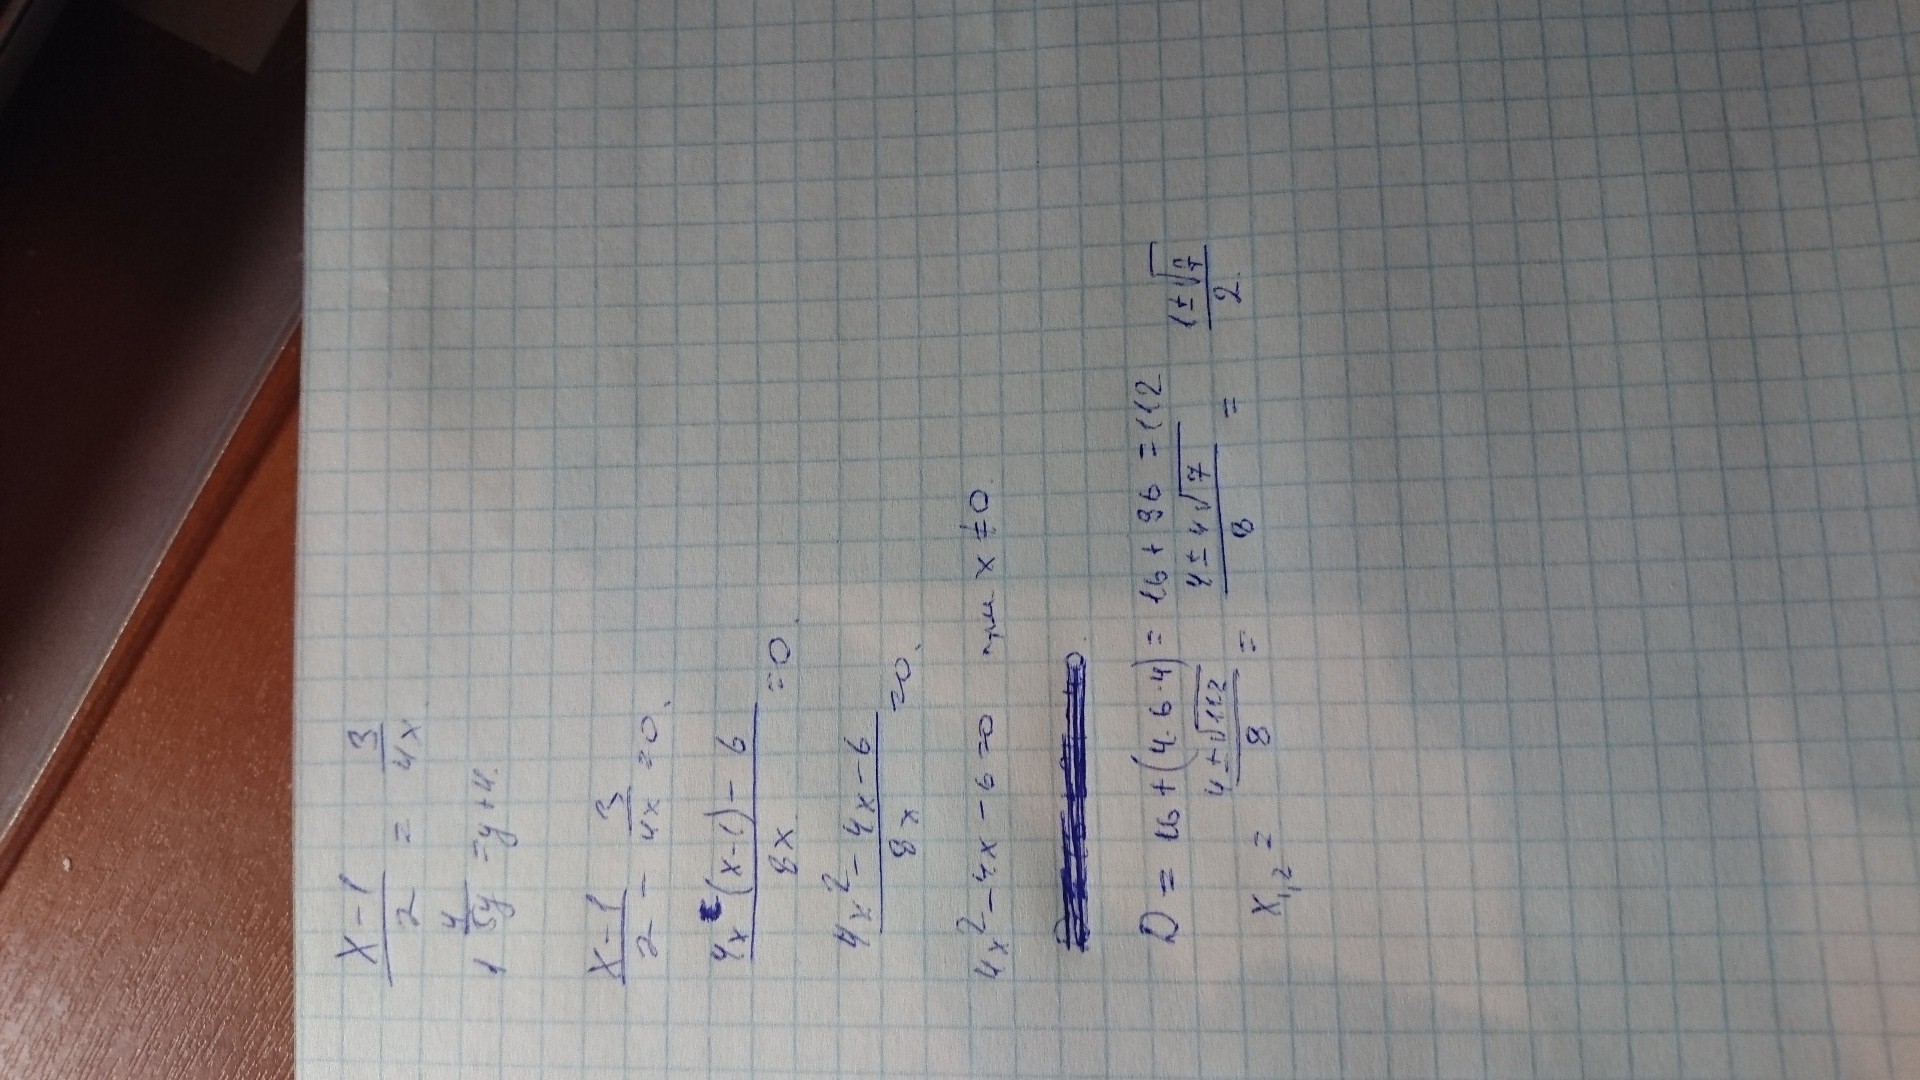 x-1/2 = 3/4x
1 4/5y = y + 4.
x-1/2 - 3/4x = 0.
4x(x-1) - 6/8x = 0.
4x² - 4x - 6/8x = 0.
4x² - 4x - 6 = 0 при x ≠ 0.
D = 16 + (4·6·4) = 16 + 96 = 112
x1,2 = 4 ± √112/8 = 4 ± 4√7/8 = 1 ± √7/2.